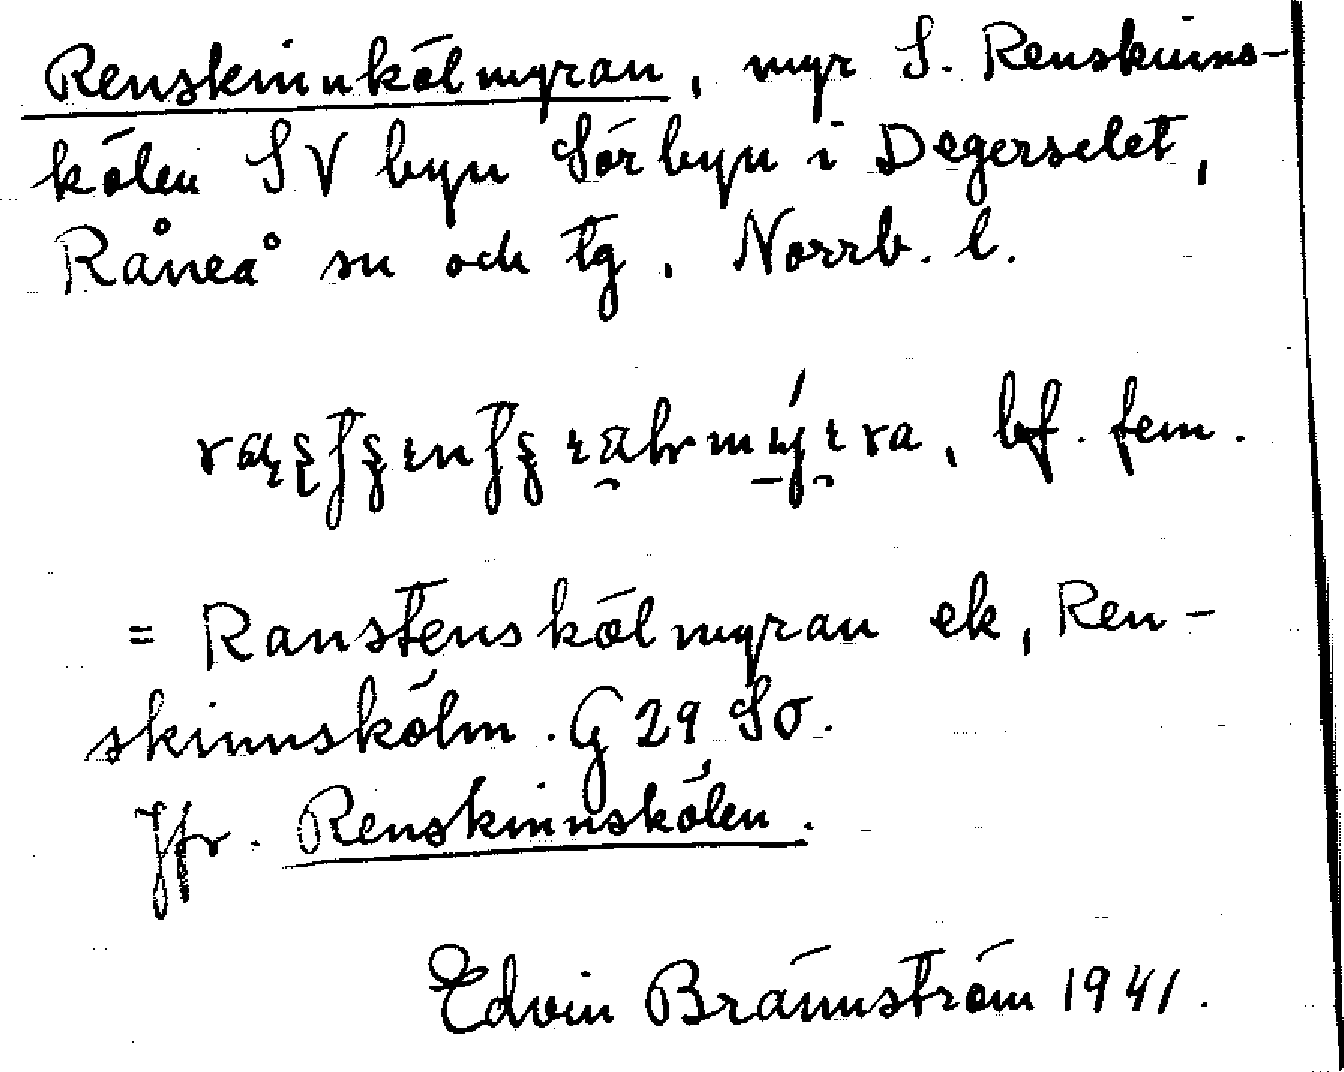 Renskinnkölmyran, myr S. Renskinns-
kölen SV byn Sörbyn i Degerselet,
Råneå sn och tg. Norrb. l.
bf. fem.
= Ranstenskölmyran ek, Ren-
skinnskölm. G 29 SO.
Jfr. Renskinnskölen.
Edvin Brännström 1941.